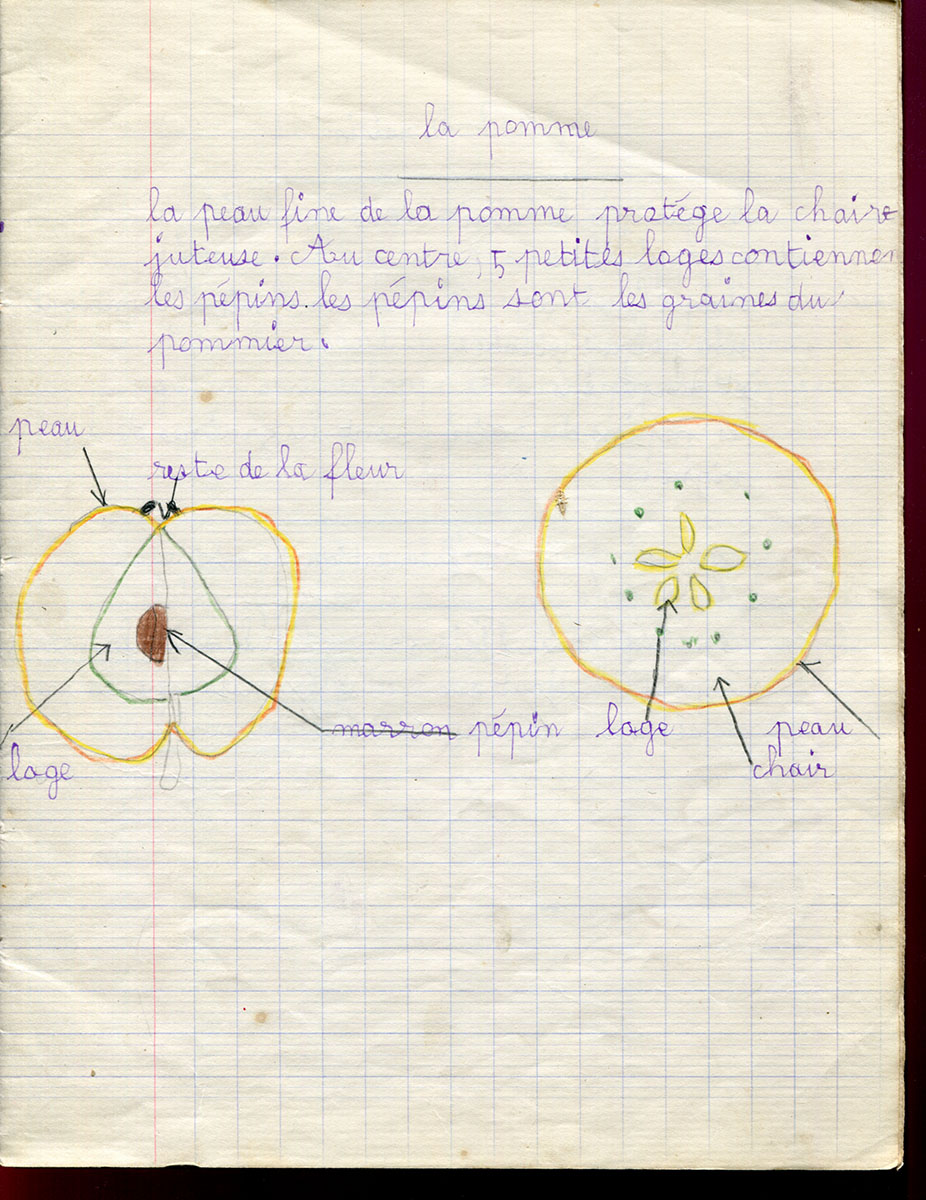 la pomme
la peau fine de la pomme protége la chaire
juteuse. Au centre, 5 petites loges contiennen
les pépins. les pépins sont les graines du
pommier.
peau
reste de la fleur
marron pépin
loge
peau
loge
chair